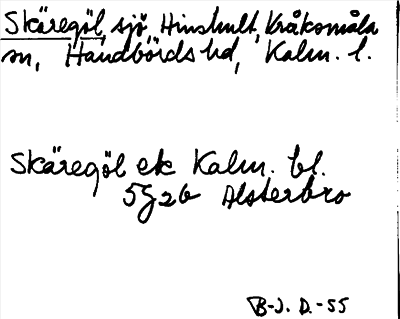 Skäregöl, sjö, Hinshult, Kråksmåla
sn, Handbörds hd, Kalm. l.
Skäregöl ek Kalm. bl.
5G2b Alsterbro
B-J. D. -55